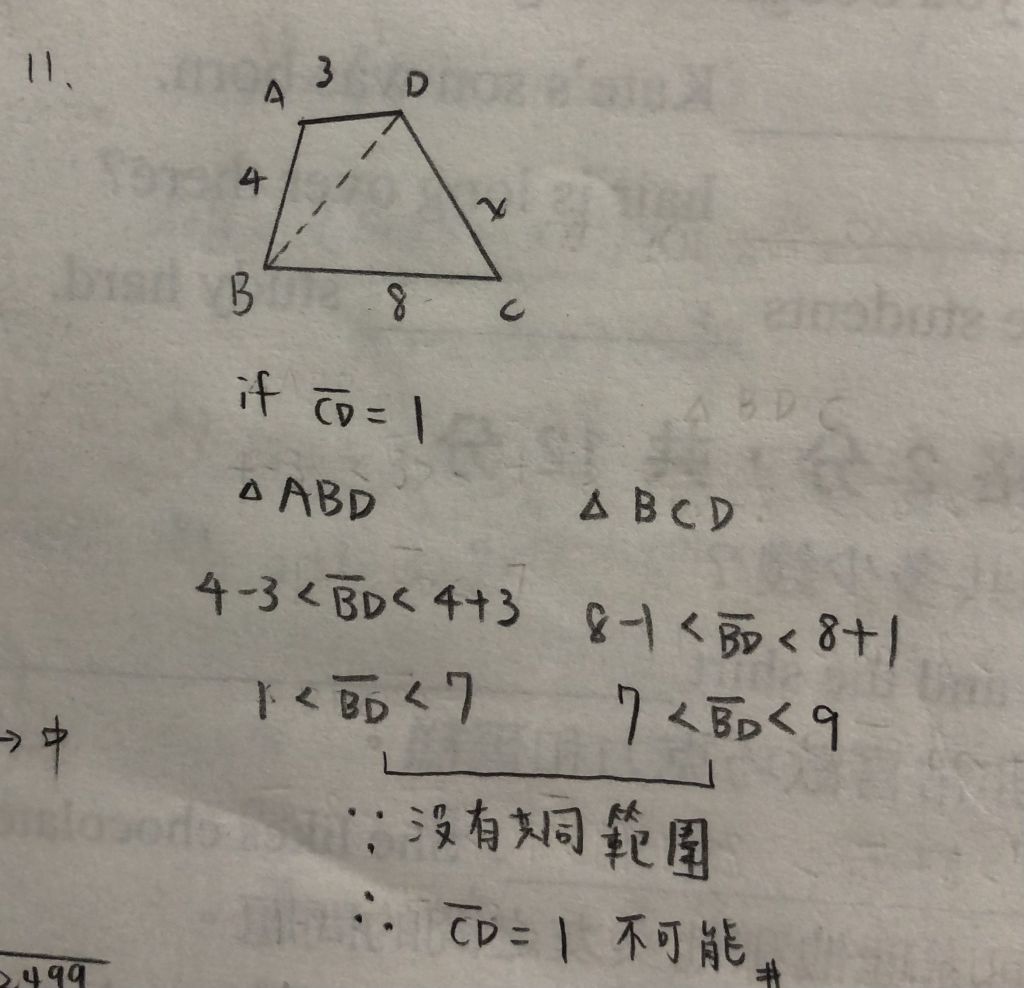 11.
3
A D
4 x
B 8 C
if C̅D̅ = 1
△ABD △BCD
4-3 < B̅D̅ < 4+3 8-1 < B̅D̅ < 8+1
1 < B̅D̅ < 7 7 < B̅D̅ < 9
→ 中
∵ 沒有共同範圍
∴ C̅D̅ = 1 不可能 #
499